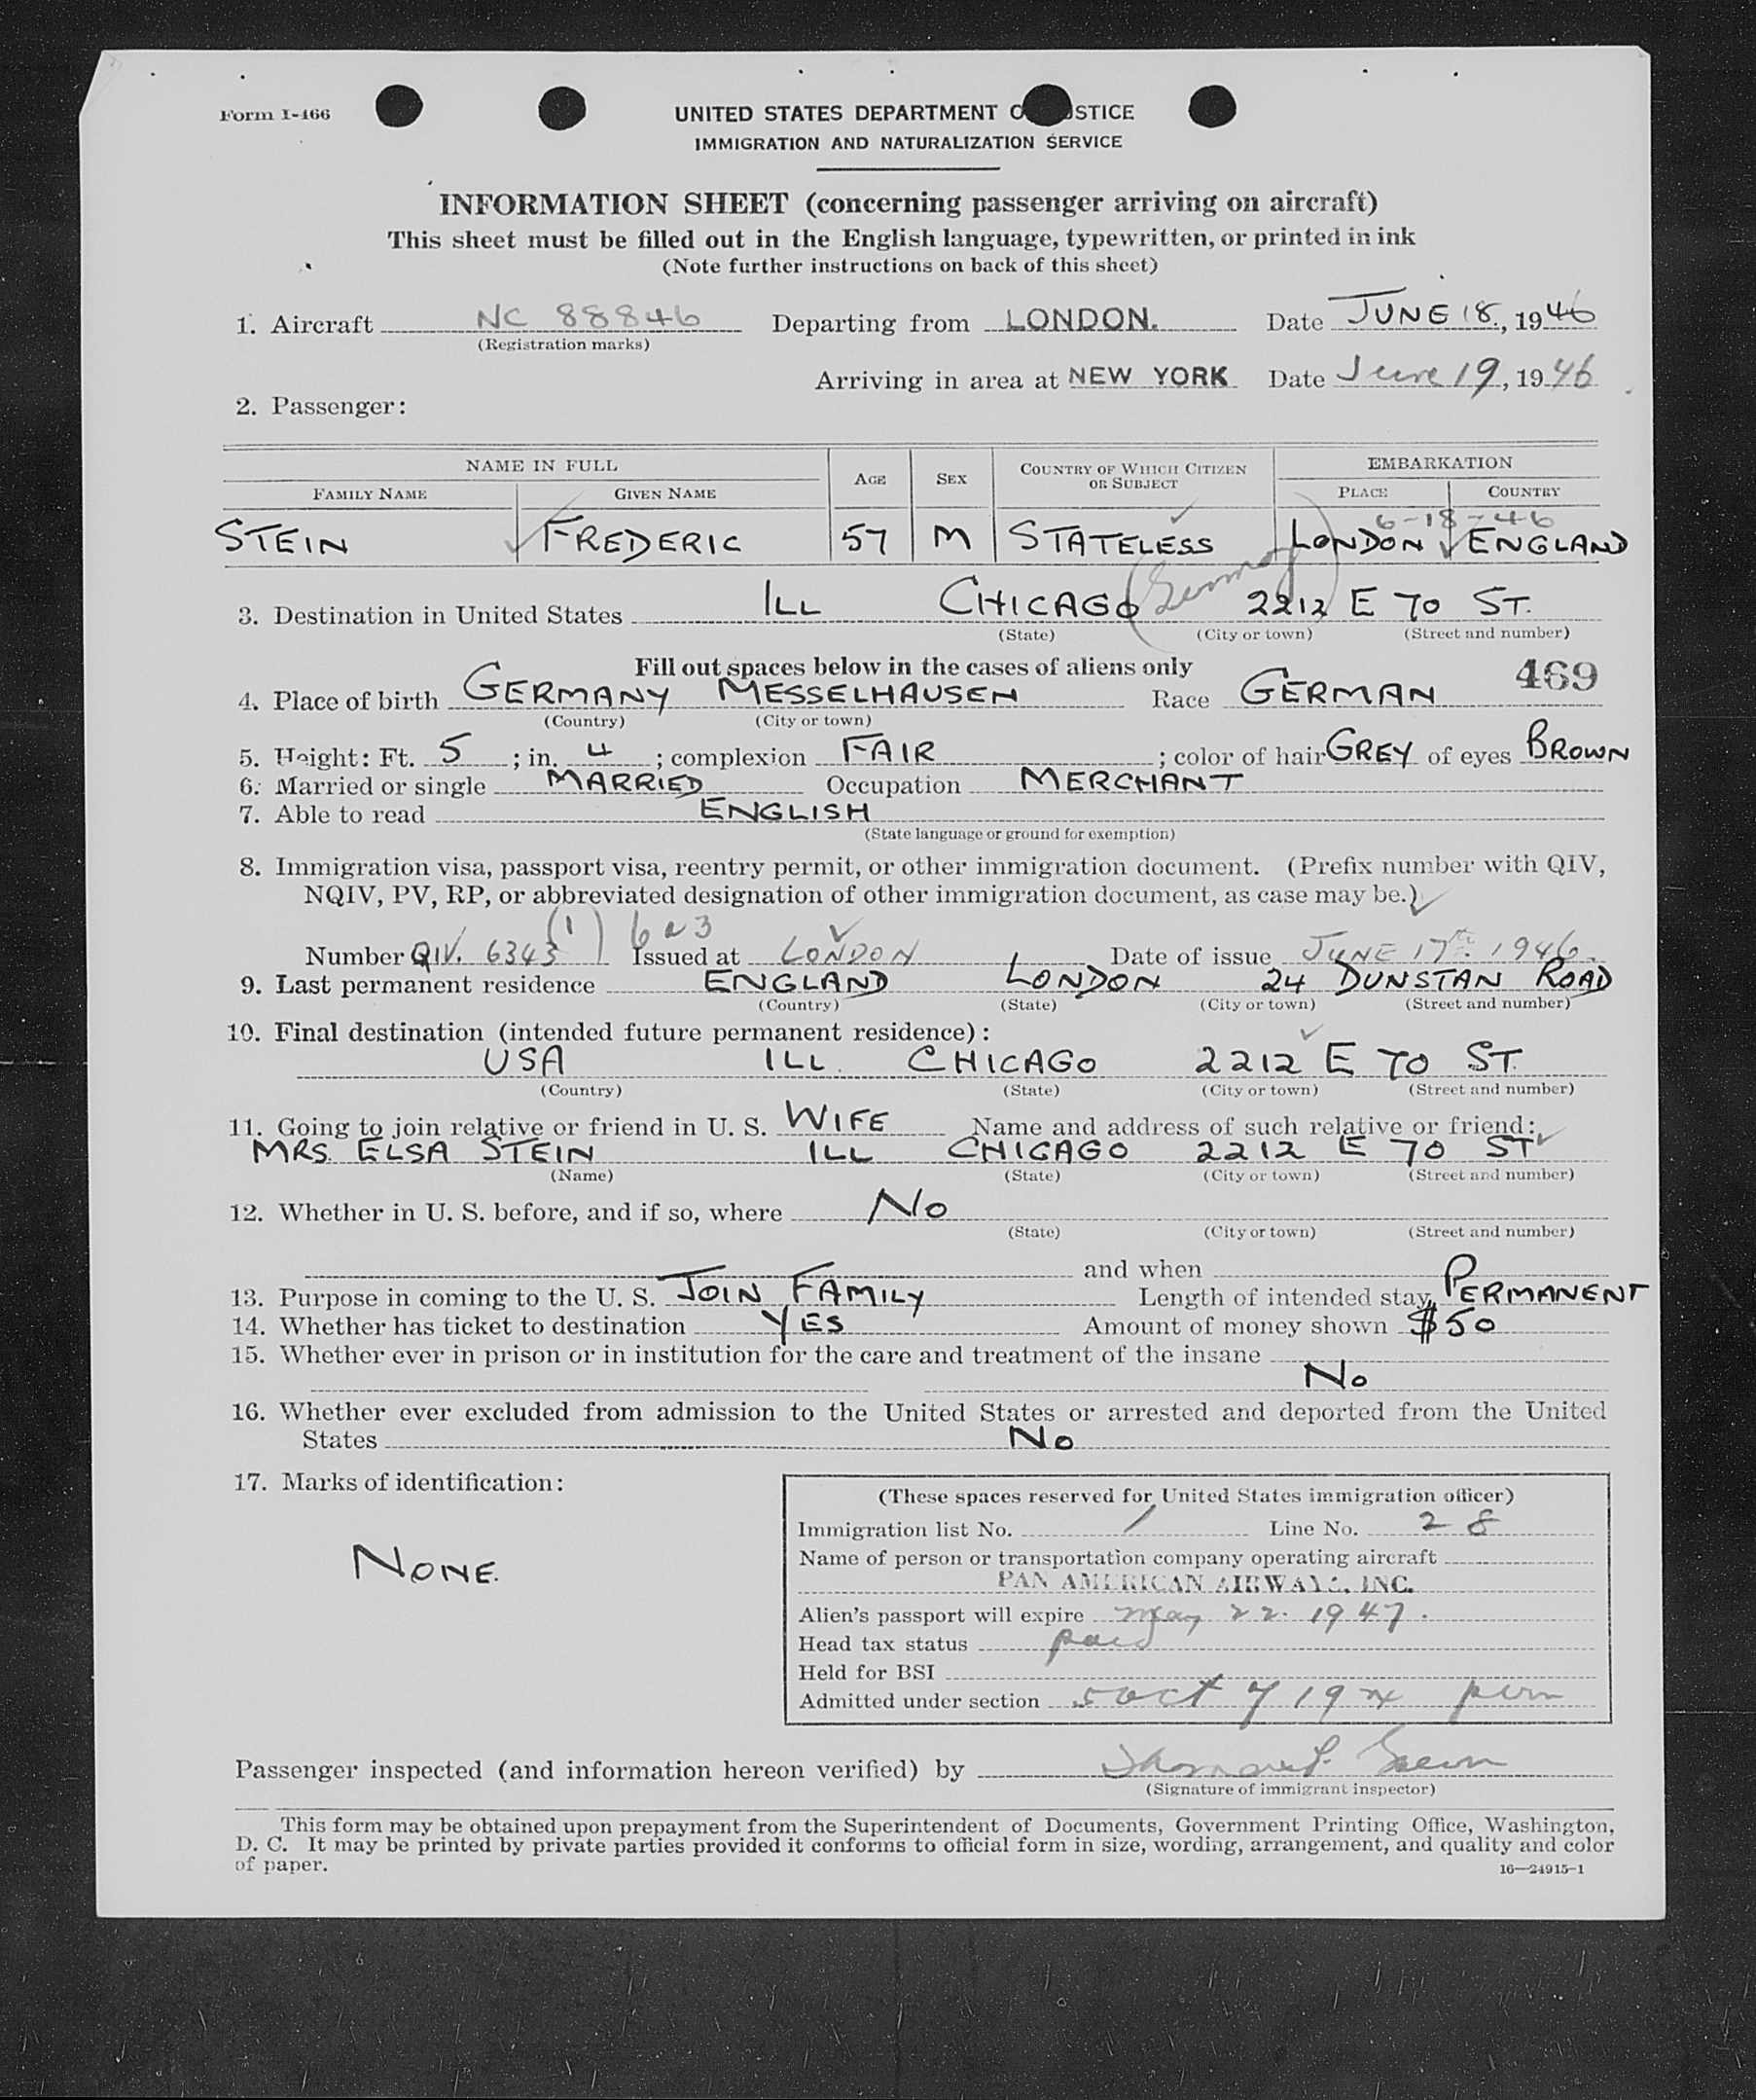 Form I-466
UNITED STATES DEPARTMENT O STICE
IMMIGRATION AND NATURALIZATION SERVICE
INFORMATION SHEET (concerning passenger arriving on aircraft)
This sheet must be filled out in the English language, typewritten, or printed in ink
(Note further instructions on back of this sheet)
1. Aircraft NC 88846 Departing from LONDON. Date JUNE 18, 1946
(Registration marks)
Arriving in area at NEW YORK Date June 19, 1946
2. Passenger:
NAME IN FULL AGE SEX COUNTRY OF WHICH CITIZEN OR SUBJECT EMBARKATION
FAMILY NAME GIVEN NAME PLACE COUNTRY
6-18-46
STEIN FREDERIC 57 M STATELESS LONDON ENGLAND
(Germany)
3. Destination in United States ILL CHICAGO 2212 E 70 ST.
(State) (City or town) (Street and number)
Fill out spaces below in the cases of aliens only 469
4. Place of birth GERMANY MESSELHAUSEN Race GERMAN
(Country) (City or town)
5. Height: Ft. 5 ; in. 4 ; complexion FAIR ; color of hair GREY of eyes BROWN
6. Married or single MARRIED Occupation MERCHANT
7. Able to read ENGLISH
(State language or ground for exemption)
8. Immigration visa, passport visa, reentry permit, or other immigration document. (Prefix number with QIV,
NQIV, PV, RP, or abbreviated designation of other immigration document, as case may be.)
(1) 6a3
Number QIV. 6343 Issued at LONDON Date of issue JUNE 17th. 1946.
9. Last permanent residence ENGLAND LONDON 24 DUNSTAN ROAD
(Country) (State) (City or town) (Street and number)
10. Final destination (intended future permanent residence):
USA ILL. CHICAGO 2212 E 70 ST.
(Country) (State) (City or town) (Street and number)
11. Going to join relative or friend in U. S. WIFE Name and address of such relative or friend:
MRS. ELSA STEIN ILL CHICAGO 2212 E 70 ST
(Name) (State) (City or town) (Street and number)
12. Whether in U. S. before, and if so, where NO
(State) (City or town) (Street and number)
and when
13. Purpose in coming to the U. S. JOIN FAMILY Length of intended stay PERMANENT
14. Whether has ticket to destination YES Amount of money shown $50
15. Whether ever in prison or in institution for the care and treatment of the insane
NO
16. Whether ever excluded from admission to the United States or arrested and deported from the United
States NO
17. Marks of identification:
NONE.
(These spaces reserved for United States immigration officer)
Immigration list No. 1 Line No. 28
Name of person or transportation company operating aircraft
PAN AMERICAN AIRWAYS, INC.
Alien's passport will expire May 22. 1947.
Head tax status paid
Held for BSI
Admitted under section 5 act of 1924 perm
Passenger inspected (and information hereon verified) by
(Signature of immigrant inspector)
This form may be obtained upon prepayment from the Superintendent of Documents, Government Printing Office, Washington,
D. C. It may be printed by private parties provided it conforms to official form in size, wording, arrangement, and quality and color
of paper.
16—24915-1